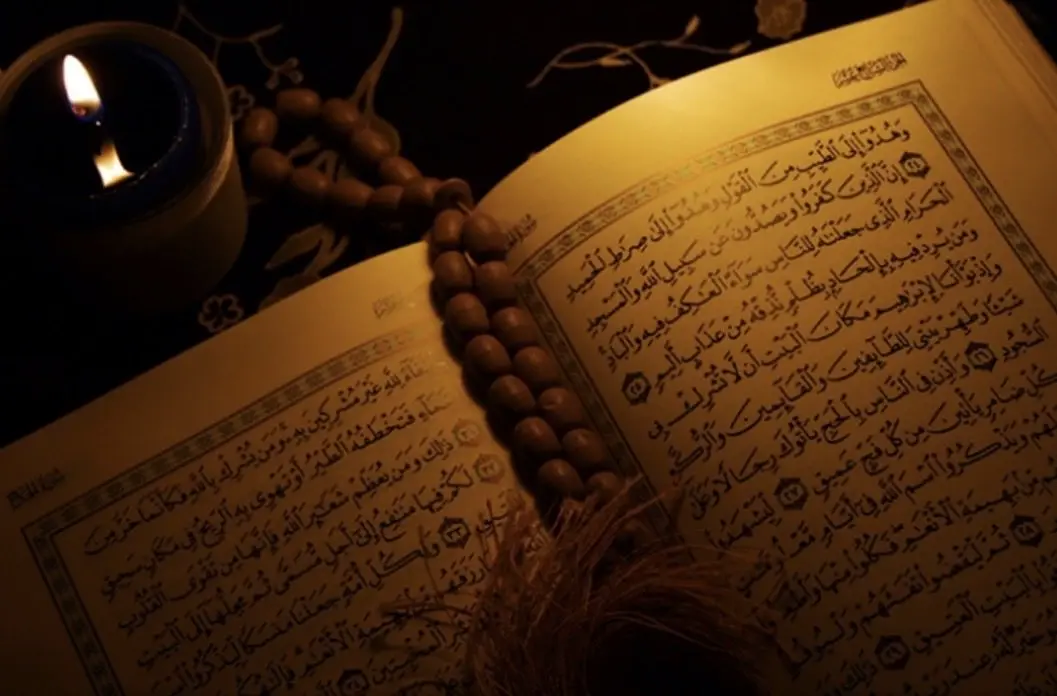 الجزء السابع عشر
وَهُدُوٓا۟ إِلَى ٱلطَّيِّبِ مِنَ ٱلْقَوْلِ وَهُدُوٓا۟ إِلَىٰ صِرَٰطِ ٱلْحَمِيدِ
٢٤ إِنَّ ٱلَّذِينَ كَفَرُوا۟ وَيَصُدُّونَ عَن سَبِيلِ ٱللَّهِ وَٱلْمَسْجِدِ
ٱلْحَرَامِ ٱلَّذِى جَعَلْنَٰهُ لِلنَّاسِ سَوَآءً ٱلْعَٰكِفُ فِيهِ وَٱلْبَادِ
وَمَن يُرِدْ فِيهِ بِإِلْحَادٍۭ بِظُلْمٍ نُّذِقْهُ مِنْ عَذَابٍ أَلِيمٍ ٢٥
وَإِذْ بَوَّأْنَا لِإِبْرَٰهِيمَ مَكَانَ ٱلْبَيْتِ أَن لَّا تُشْرِكْ بِى
شَيْـًٔا وَطَهِّرْ بَيْتِىَ لِلطَّآئِفِينَ وَٱلْقَآئِمِينَ وَٱلرُّكَّعِ
ٱلسُّجُودِ ٢٦ وَأَذِّن فِى ٱلنَّاسِ بِٱلْحَجِّ يَأْتُوكَ رِجَالًا وَعَلَىٰ
كُلِّ ضَامِرٍ يَأْتِينَ مِن كُلِّ فَجٍّ عَمِيقٍ ٢٧ لِّيَشْهَدُوا۟
لَهُمْ وَيَذْكُرُوا۟ ٱسْمَ ٱللَّهِ فِىٓ أَيَّامٍ
مِّنۢ بَهِيمَةِ ٱلْأَنْعَٰمِ فَكُلُوا۟ مِنْهَا
٢٨ ثُمَّ لْيَقْضُوا۟ تَفَثَهُمْ وَلْيُوفُوا۟
بِٱلْبَيْتِ ٱلْعَتِيقِ ٢٩ ذَٰلِكَ
خَيْرٌ لَّهُۥ عِندَ
سورة الحج
لِلَّهِ غَيْرَ مُشْرِكِينَ بِهِۦ وَمَن يُشْرِكْ بِٱللَّهِ فَكَأَنَّمَا خَرَّ مِنَ
فَتَخْطَفُهُ ٱلطَّيْرُ أَوْ تَهْوِى بِهِ ٱلرِّيحُ فِى مَكَانٍ سَحِيقٍ
٣١ ذَٰلِكَ وَمَن يُعَظِّمْ شَعَٰٓئِرَ ٱللَّهِ فَإِنَّهَا مِن تَقْوَى ٱلْقُلُوبِ
٣٢ لَكُمْ فِيهَا مَنَٰفِعُ إِلَىٰٓ أَجَلٍ مُّسَمًّى ثُمَّ مَحِلُّهَآ إِلَى ٱلْبَيْتِ
٣٣ وَلِكُلِّ أُمَّةٍ جَعَلْنَا مَنسَكًا لِّيَذْكُرُوا۟
رَزَقَهُم ٱلْأَنْعَٰمِ
ٱلْمُخْبِتِينَ ٣٤